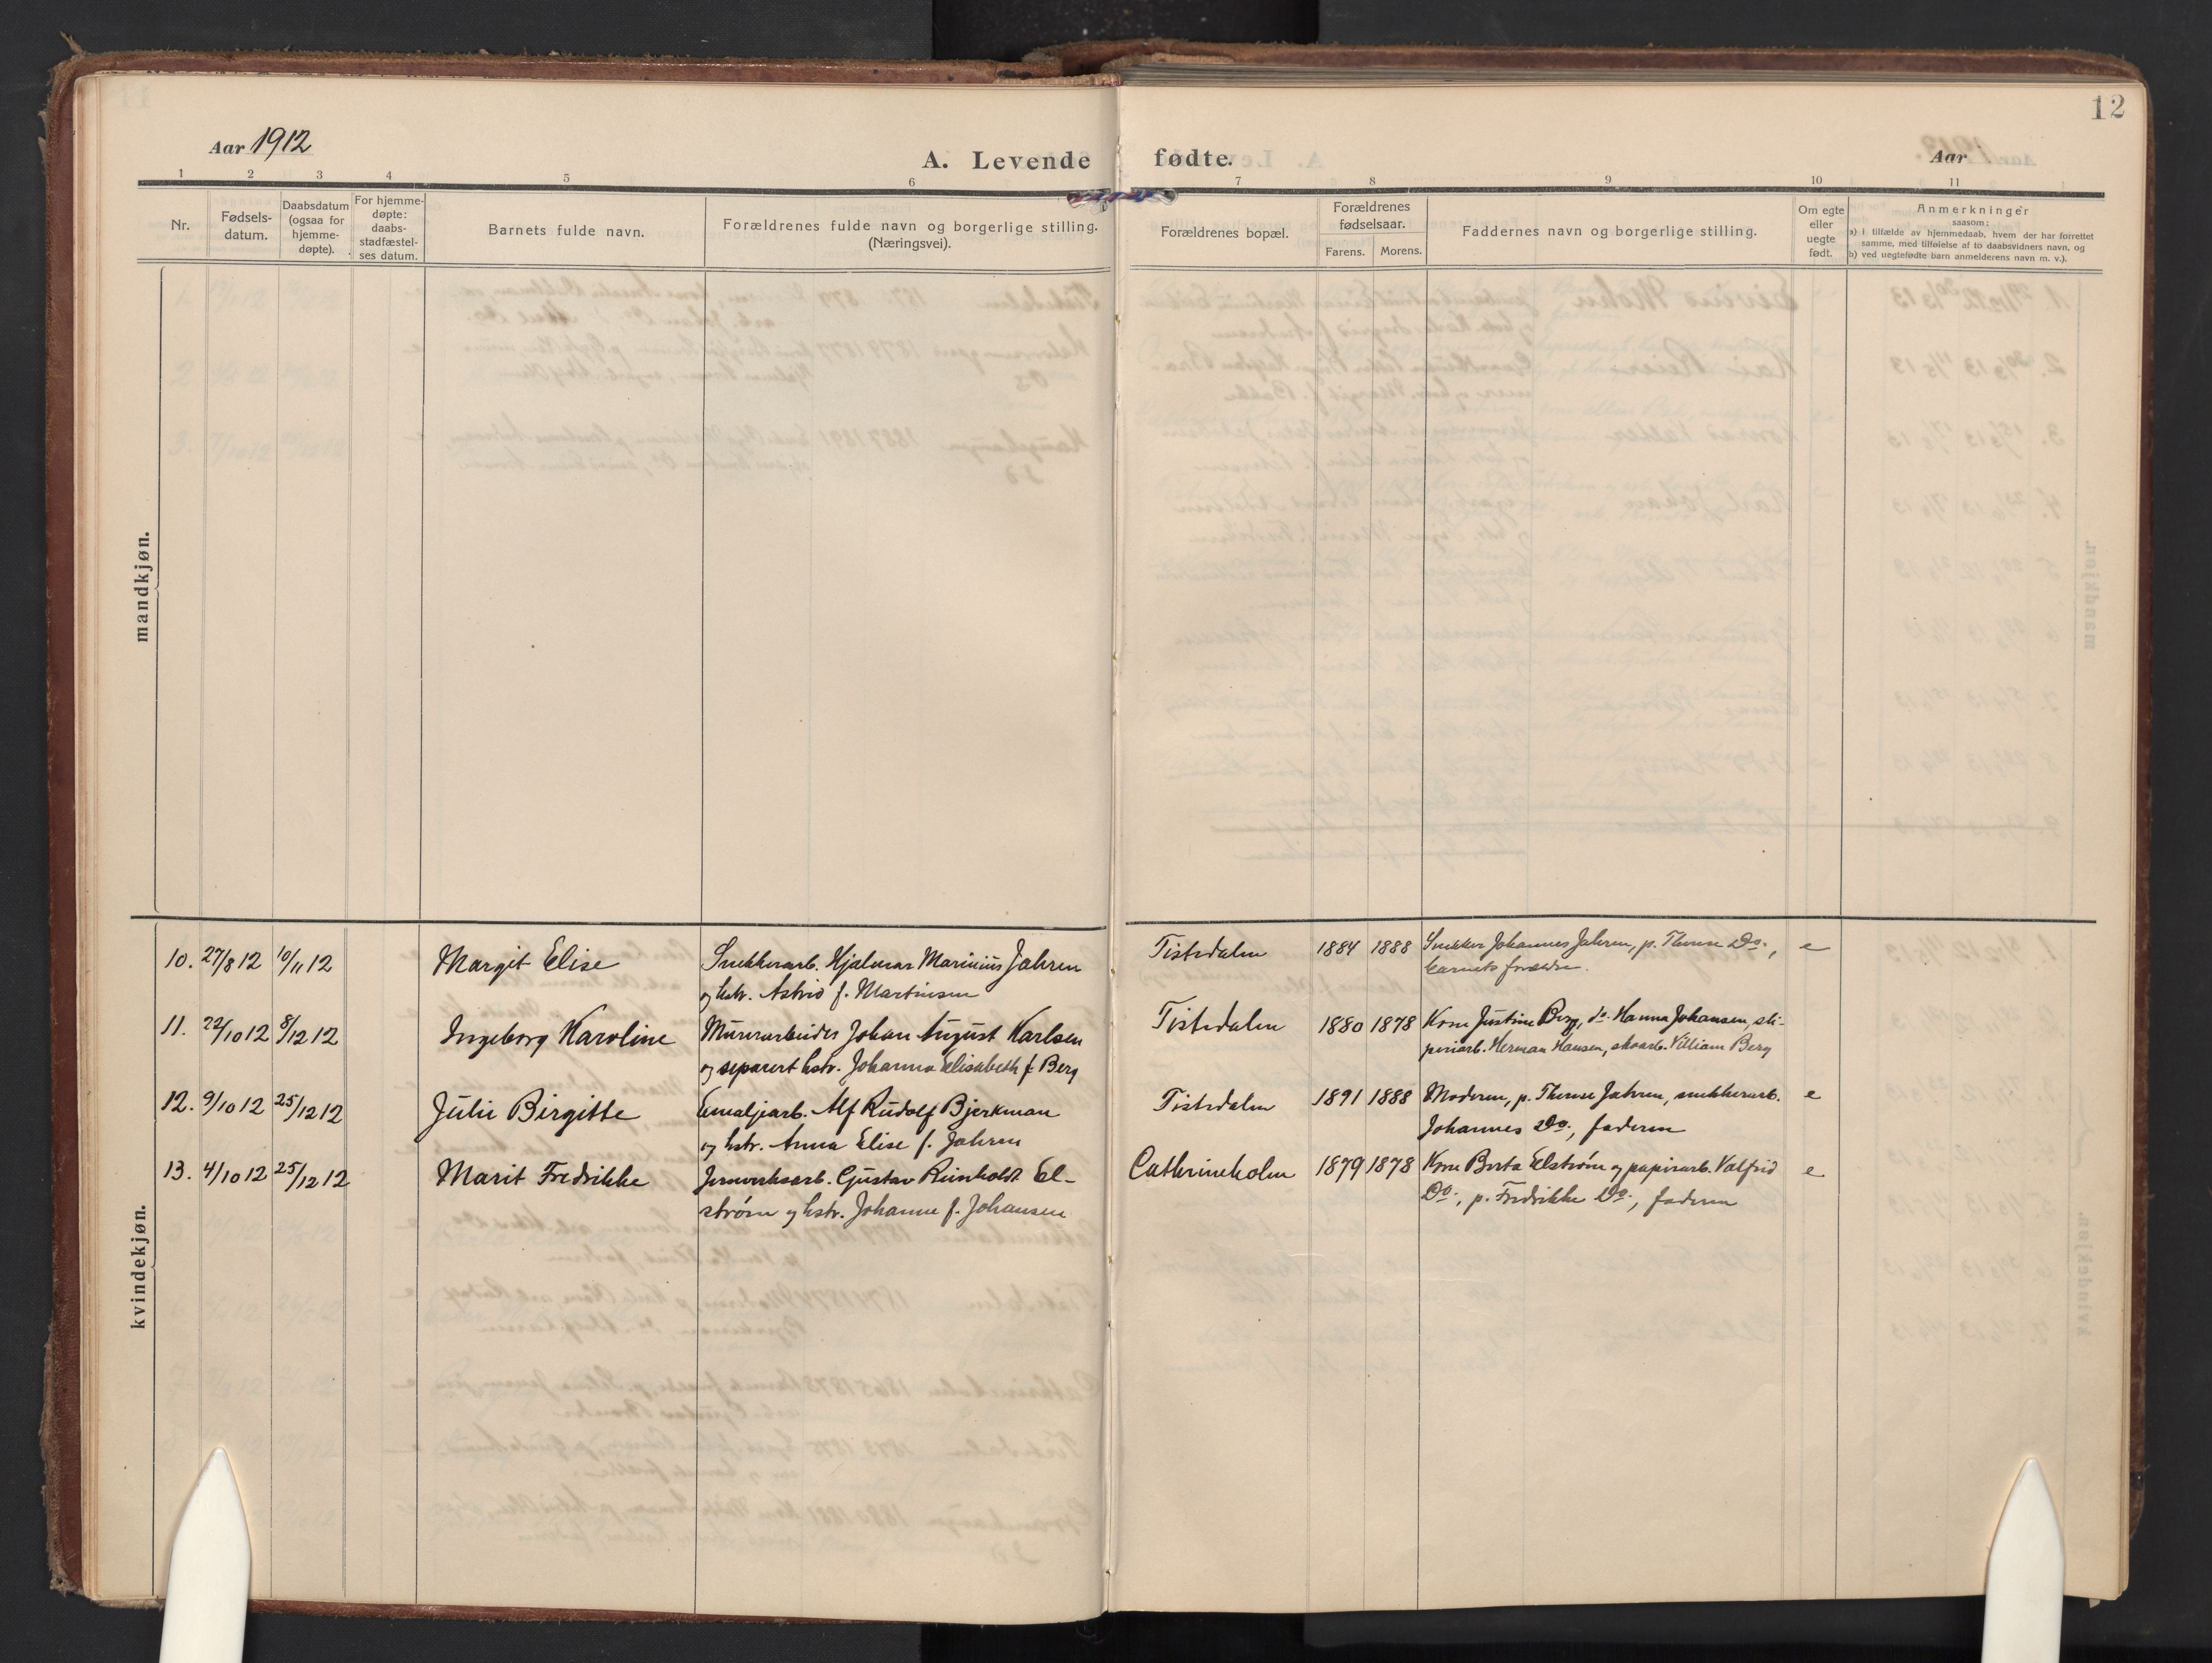 12
Aar 1912
A. Levende fødte.
Aar
1 2 3 4 5 6 7 8 9 10 11
Nr.
Fødsels-
datum.
Daabsdatum
(ogsaa for
hjemme-
døpte).
For hjemme-
døpte:
daabs-
stadfæstel-
ses datum.
Barnets fulde navn.
Forældrenes fulde navn og borgerlige stilling.
(Næringsvei).
Forældrenes bopæl.
Forældrenes
fødselsaar.
Farens. Morens.
Faddernes navn og borgerlige stilling.
Om egte
eller
uegte
født.
Anmerkninger
saasom:
a) i tilfælde av hjemmedaab, hvem der har forrettet
samme, med tilføielse af to daabsvidners navn, og
b) ved uegtefødte barn anmelderens navn m. v.).
mandkjøn.
kvindekjøn.
10. 27/8 12 10/11 12 Margit Elise Snekkerarb. Hjalmar Marinius Jahren Tistedalen 1884 1888 Snekker Johannes Jahren, p. Therese Do., e
og hstr. Astrid f. Martinsen barnets forældre.
11. 22/10 12 8/12 12 Ingeborg Karoline Murerarbeider Johan August Karlsen Tistedalen 1880 1878 Kone Justine Berg, do. Hanna Johansen, sli-
og separert hstr. Johanna Elisabeth f. Berg periarb. Herman Hansen, skoarb. Villiam Berg
12. 9/10 12 25/12 12 Julie Birgitte Emaljearb. Alf Rudolf Bjerkman Tistedalen 1891 1888 Moderen, p. Therese Jahren, snekkerarb. e
og hstr. Anna Elise f. Jahren Johannes Do., faderen
13. 4/10 12 25/12 12 Marit Fredrikke Jernverksarb. Gustav Reinholdt El- Cathrineholm 1879 1878 Kone Berta Elstrøm og papirarb. Valfrid e
strøm og hstr. Johanne f. Johansen Do., p. Fredrikke Do., faderen